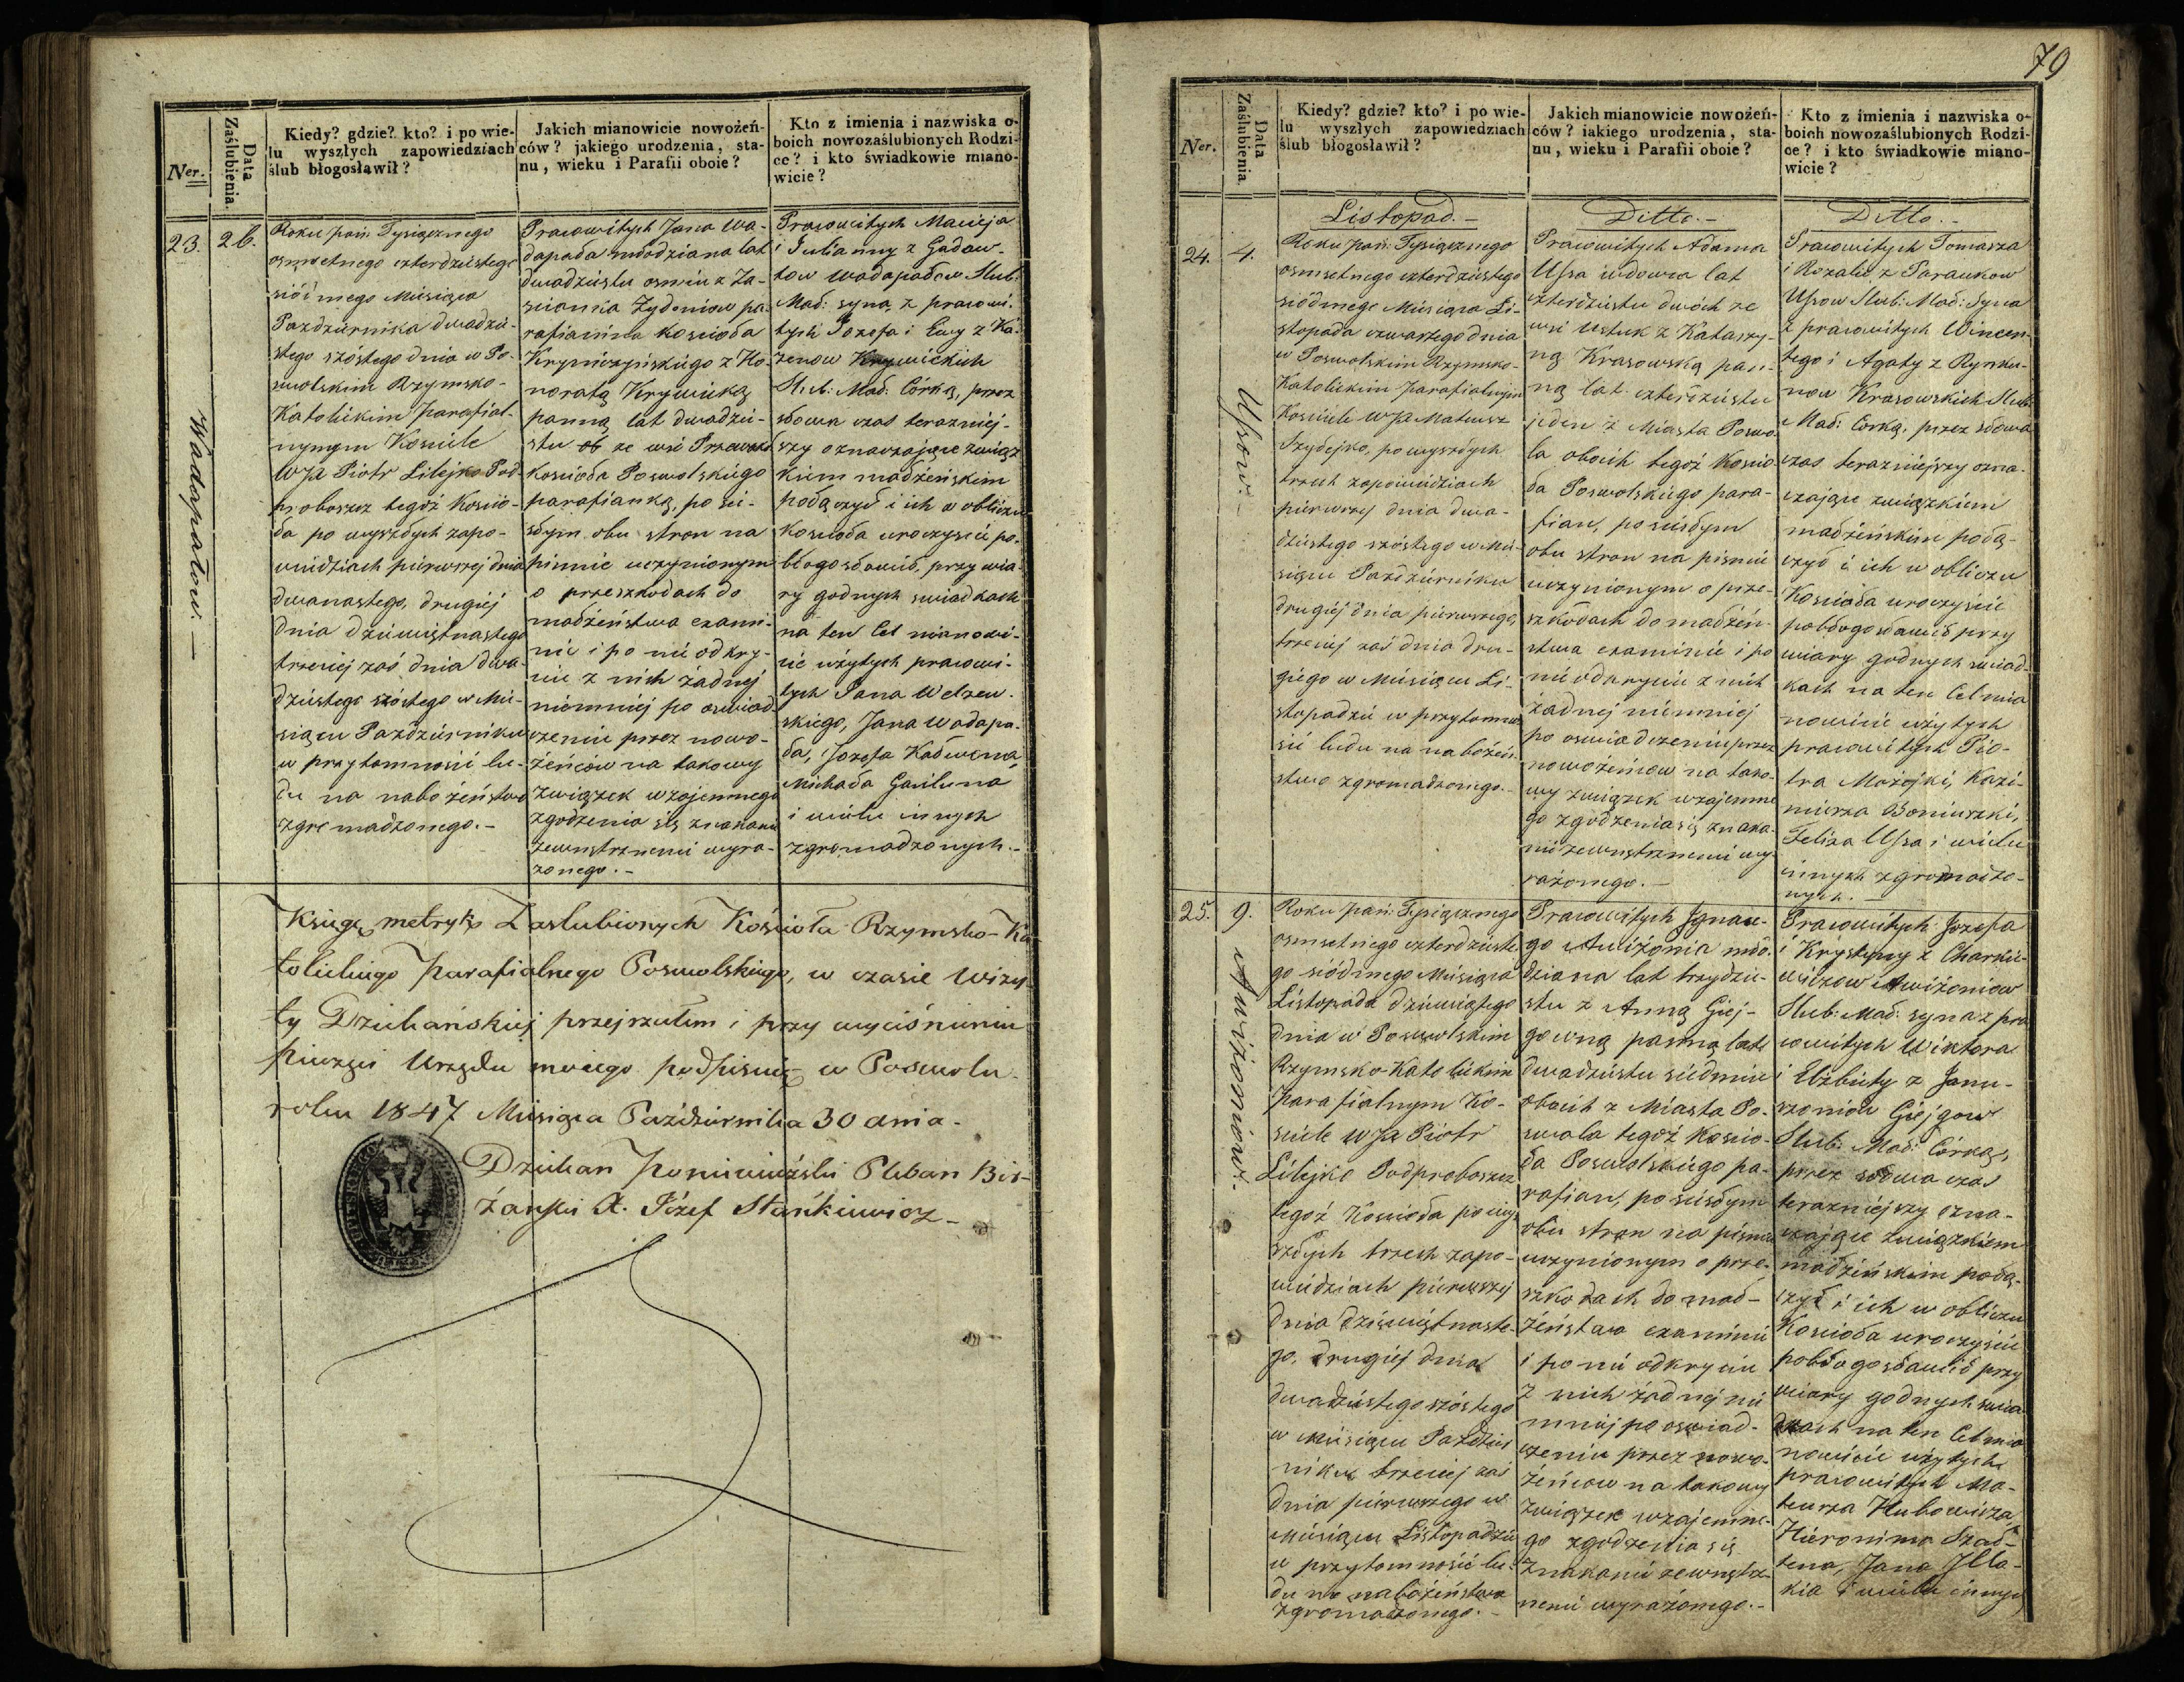 Ner.
Data Zaślubienia.
Kiedy? gdzie? kto? i po wie-
lu wyszłych zapowiedziach
ślub błogosławił?
Jakich mianowicie nowożeń-
ców? jakiego urodzenia, sta-
nu, wieku i Parafii oboie?
Kto z imienia i nazwiska o-
boich nowozaślubionych Rodzi-
ce? i kto świadkowie miano-
wicie?
23.
26.
Wadapałow. —
Roku pań: Tysiącznego
osmsetnego czterdziestego
siódmego Miesiąca
Pazdziernika dwadzie-
stego szóstego dnia w Po-
swolskim Rzymsko-
Katolickim parafial-
nym Kosciele
WJX Piotr Lilejko Pod-
proboszcz tegoż Koscio-
ła po wyszłych zapo-
wiedziach pierwszej dnia
dwanastego, drugiej
dnia dziewiętnastego
trzeciej zaś dnia dwa-
dziestego szóstego w Mie-
siącu Pazdzierniku
w przytomności lu-
du na nabożeństwo
zgromadzonego. —
Pracowitych Jana Wa-
dapała młodziana lat
dwadziestu osmiu z Za-
scianka Zydoniow pa-
rafianina koscioła
Kryniczyńskiego z Ho-
noratą Krywicką
panną lat dwadzie-
stu ze wsi
Koscioła Poswolskiego
parafianką, po ści-
słym obu stron na
pismie uczynionym
o przeszkodach do
małżeństwa exami-
nie i po nie odkry-
ciu z nich żadnej
niemniej po oswiad-
czeniu przez nowo-
żeńców na takowy
związek wzajemnego
zgodzenia się znakami
zewnętrznemi wyra-
żonego. —
Pracowitych Macieja
i Julianny z Gadow-
tow Wadapałow Slub:
Mał: syna, z pracowi-
tych Jozefa i Ewy z Ka-
zenow Krywickich
Slub: Mał: Córką, przez
słowa czas terazniej-
szy oznaczające związ-
kiem małżeńskim
połączył i ich w obliczu
Koscioła uroczyscie po-
błogosławił, przy wia-
ry godnych swiadkach
na ten Cel mianowi-
cie użytych pracowi-
tych Jana Welzew-
skiego, Jana Wadapa-
ła, Jozefa Kadwena
Michała Gasiluna
i wielu innych
zgromadzonych. —
Księgę metryk Zaslubionych Kościoła Rzymsko-Ka-
tolickiego Parafialnego Poswolskiego, w czasie Wizy-
ty Dziekańskiej przejrzałem i przy wyciśnieniu
pieczęci Urzędu mojego podpisuję w Poswolu
roku 1847 Miesiąca Października 30 dnia.
Dziekan Poniewieżski Pleban Bir-
żański X. Józef Stańkiewicz —
79
Ner.
Data Zaślubienia.
Kiedy? gdzie? kto? i po wie-
lu wyszłych zapowiedziach
ślub błogosławił?
Jakich mianowicie nowożeń-
ców? iakiego urodzenia, sta-
nu, wieku i Parafii oboie?
Kto z imienia i nazwiska o-
boich nowozaślubionych Rodzi-
ce? i kto świadkowie miano-
wicie?
Listopad. —
Ditto. —
Ditto. —
24.
4.
Ussow. —
Roku pań: Tysiącznego
osmsetnego czterdziestego
siódmego Miesiąca Li-
stopada czwartego dnia
w Poswolskim Rzymsko-
Katolickim parafialnym
Kosciele WJX Mateusz
Szydejko, po wyszłych
trzech zapowiedziach
pierwszej dnia dwa-
dziestego szóstego w Mie-
siącu Pazdzierniku
drugiej dnia pierwszego,
trzeciej zaś dnia dru-
giego w Miesiącu Li-
stopadzie w przytomno-
ści ludu na nabożeń-
stwo zgromadzonego. —
Pracowitych Adama
Ussa wdowca lat
czterdziestu dwóch ze
wsi Ustuk z Katarzy-
ną Krasowską pan-
ną lat czterdziestu
jeden z Miasta Poswo-
la oboich tegoż Koscio-
ła Poswolskiego para-
fian, po ścisłym
obu stron na pismie
uczynionym o prze-
szkodach do małżeń-
stwa examinie i po
nie odkryciu z nich
żadnej niemniej
po oswiadczeniu przez
nowożeńcow na tako-
wy związek wzajemne-
go zgodzenia się znaka-
mi zewnętrznemi wy-
rażonego. —
Pracowitych Tomasza
i Rozalii z Paraukow
Ussow Slub: Mał: Syna
z pracowitych Wincen-
tego i Agaty z Rynku-
now Krasowskich Slub:
Mał: Corką, przez słowa
czas terazniejszy ozna-
czające związkiem
małżeńskim połą-
czył i ich w obliczu
Koscioła uroczyscie
pobłogosławił przy
wiary godnych swiad-
kach na ten Cel mia-
nowicie użytych
pracowitych Pio-
tra Możejki, Kazi-
mierza Boniuszki,
Felixa Ussa i wielu
innych zgromadzo-
nych. —
25.
9.
Awiżoniow. —
Roku pań: Tysiącznego
osmsetnego czterdzieste-
go siódmego Miesiąca
Listopada dziewiątego
dnia w Poswolskim
Rzymsko-Katolickim
parafialnym Ko-
sciele WJX Piotr
Lilejko Podproboszcz
tegoż Koscioła po wy-
szłych trzech zapo-
wiedziach pierwszej
dnia dziewiętnaste-
go, drugiej dnia
dwadziestego szóstego
w Miesiącu Pazdzier-
niku, trzeciej zaś
dnia pierwszego w
Miesiącu Listopadzie
w przytomności lu-
du na nabożeństwo
zgromadzonego. —
Pracowitych Ignace-
go Awiżonia mło-
dziana lat trzydzie-
stu z Anną Giej-
gowną panną lat
dwadziestu siedmiu
oboich z Miasta Po-
swola tegoż Koscio-
ła Poswolskiego pa-
rafian, po ścisłym
obu stron na pismie
uczynionym o prze-
szkodach do mał-
żeństwa examinie
i po nie odkryciu
z nich żadnej nie
mniej po oswiad-
czeniu przez nowo-
żeńcow na takowy
związek wzajemne-
go zgodzenia się
znakami zewnętrz-
nemi wyrażonego. —
Pracowitych Jozefa
i Krystyny z Charkie-
wiczow Awiżoniow
Slub: Mał: syna z pra-
cowitych Wiktora
i Elżbiety z Janu-
szoniow Giejgow
Slub: Mał: Córką,
przez słowa czas
terazniejszy ozna-
czające związkiem
małżeńskim połą-
czył i ich w obliczu
Koscioła uroczyscie
pobłogosławił przy
wiary godnych swia-
dkach na ten Cel mia-
nowicie użytych
pracowitych Ma-
teusza Hubowicza,
Hieronima Szad-
tena, Jana Illa-
kia i wielu innych